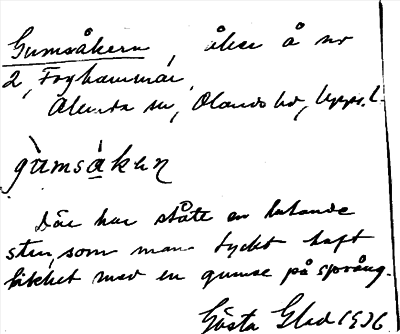 Gumsåkern, åker å nr
2, Foghammar,
Alunda sn, Olands hd, Upps. l.
gùmsåkən
Där har stått en lutande
sten, som man tyckt haft
likhet med en gumse på språng.
Gösta Gled 1936